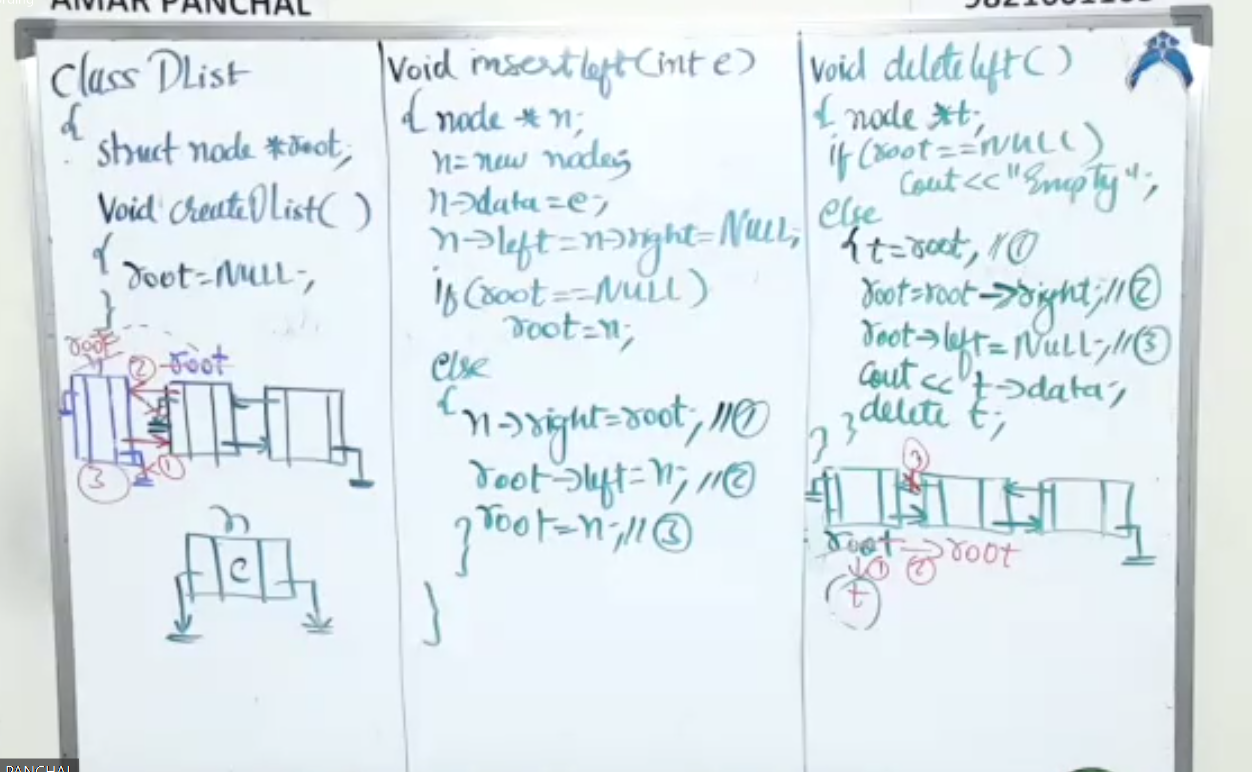 AMAR PANCHAL
Class DList
{
struct node *root;
Void createDlist( )
{
root=NULL;
}
root
② root
①
③
n
e
Void insertleft(int e)
{ node * n;
n=new node;
n->data=e;
n->left=n->right=NULL;
if(root==NULL)
root=n;
else
{
n->right=root; //①
root->left=n; //②
root=n; //③
}
}
Void deleteleft( )
{ node *t;
if(root==NULL)
cout<<"Empty";
else
{ t=root; //①
root=root->right; //②
root->left=NULL; //③
cout << t->data;
delete t;
} }
③
root -> root
① ②
t
PANCHAL